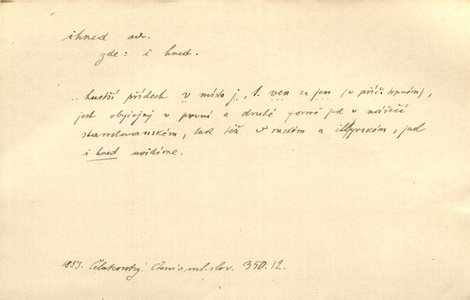 ihned adv.
gde: i hned.
.. hustší přídech v místo j, t. ven za jen (v příč. trpném),
jest obyčejný v první a druhé formě jak v nářečí
staroslovanském, tak též v ruském a illyrském, jak
i hned uvidíme.
1853. Čelakovský Čtení o ml. slov. 350. 12.